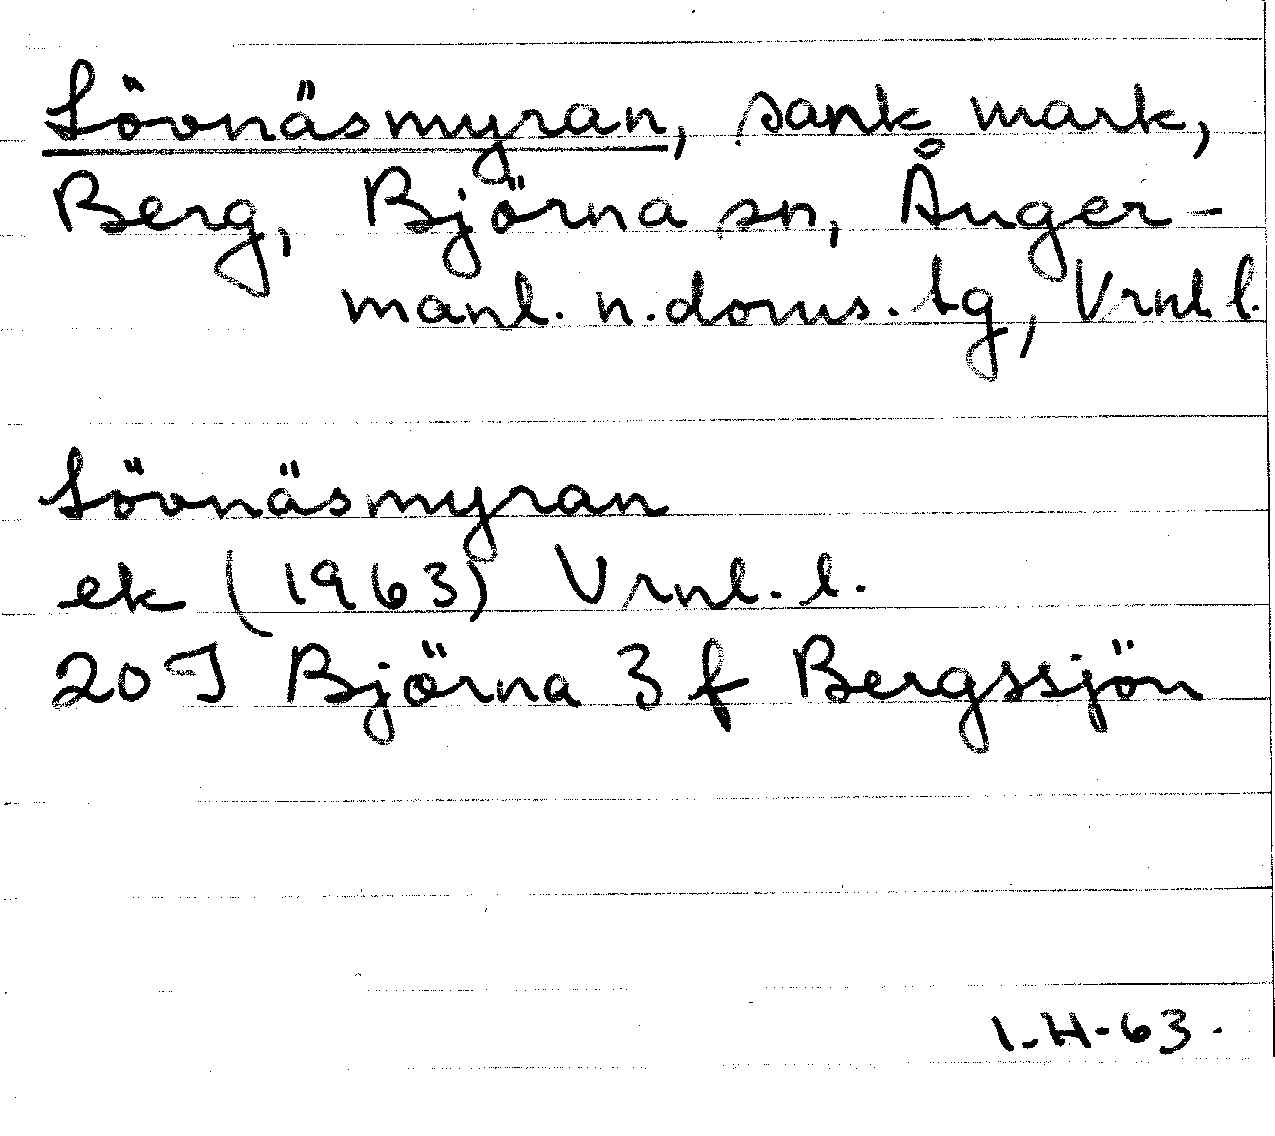 Sövnäsmyran, sank mark,
Berg, Björna sn, Ånger-
manl. n. doms. tg, Vrnl. l.
Sövnäsmyran
ek (1963) Vrnl. l.
20 J Björna 3 f Bergssjön
I.H-63.